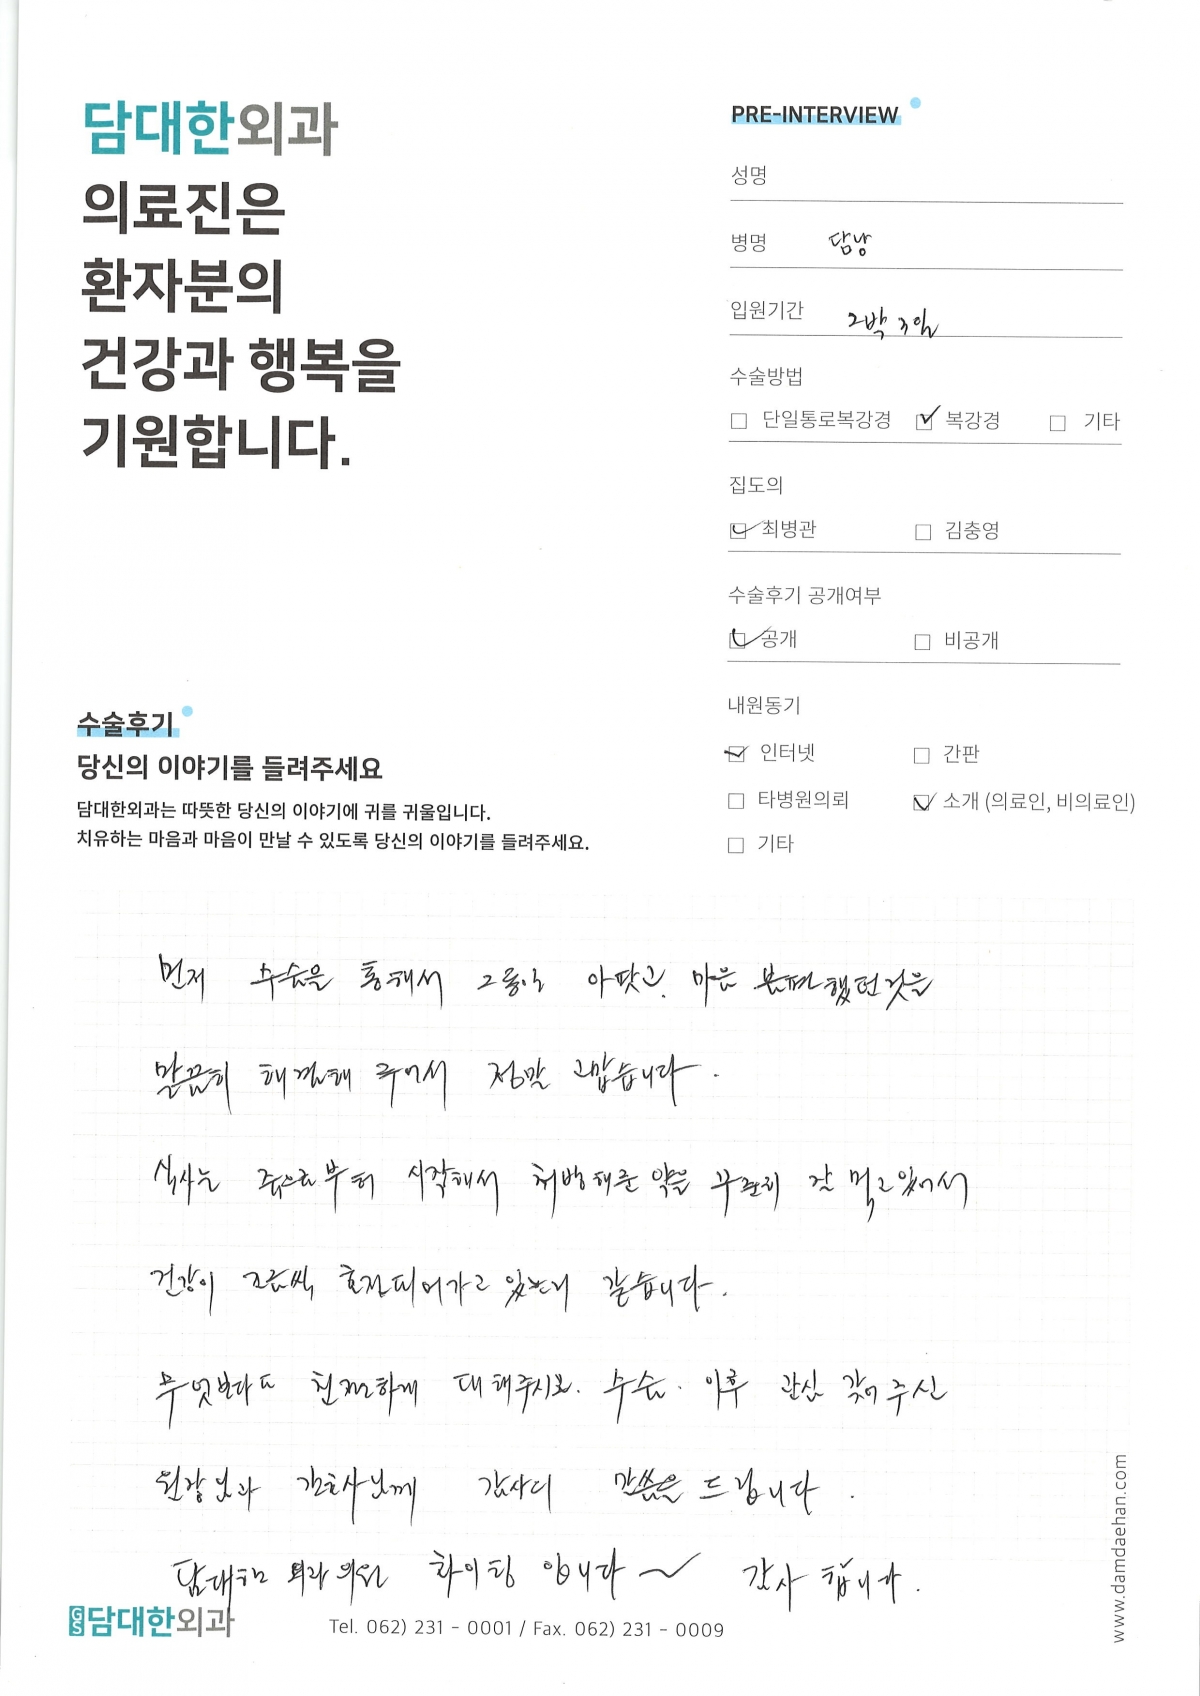 담대한외과
의료진은
환자분의
건강과 행복을
기원합니다.
PRE-INTERVIEW
성명
병명 담낭
입원기간 2박 3일
수술방법
☐ 단일통로복강경 ☑ 복강경 ☐ 기타
집도의
☑ 최병관 ☐ 김충영
수술후기 공개여부
☑ 공개 ☐ 비공개
내원동기
☑ 인터넷 ☐ 간판
☐ 타병원의뢰 ☑ 소개 (의료인, 비의료인)
☐ 기타
수술후기
당신의 이야기를 들려주세요
담대한외과는 따뜻한 당신의 이야기에 귀를 귀울입니다.
치유하는 마음과 마음이 만날 수 있도록 당신의 이야기를 들려주세요.
먼저 수술을 통해서 그동안 아팟고, 마음 불편했던것을
말끔히 해결해 주어서 정말 고맙습니다.
식사는 죽으로부터 시작해서 처방해준 약을 꾸준히 잘 먹고있어서
건강이 조금씩 호전되어가고 있는거 같습니다.
무엇보다도 친절하게 대해주시고. 수술. 이후 관심 갖어주신
원장님과 간호사님께 감사의 말씀을 드립니다.
담대한 외과의원 화이팅 입니다~ 감사 합니다.
GS 담대한외과
Tel. 062) 231 - 0001 / Fax. 062) 231 - 0009
www.damdaehan.com